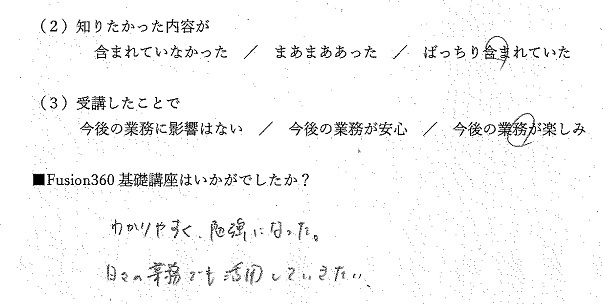 （２）知りたかった内容が
含まれていなかった ／ まあまああった ／ ばっちり含まれていた
（３）受講したことで
今後の業務に影響はない ／ 今後の業務が安心 ／ 今後の業務が楽しみ
■Fusion360 基礎講座はいかがでしたか？
わかりやすく、勉強になった。
日々の業務でも活用していきたい。